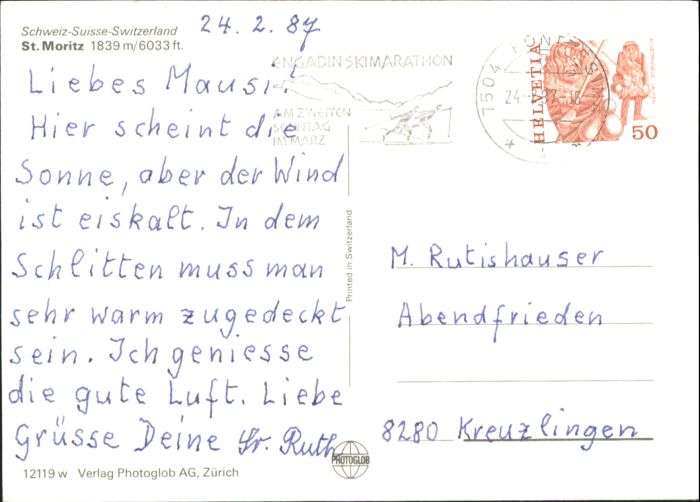 Schweiz-Suisse-Switzerland
St. Moritz 1839 m/6033 ft.
24. 2. 87
Liebes Mausi!
Hier scheint die
Sonne, aber der Wind
ist eiskalt. In dem
Schlitten muss man
sehr warm zugedeckt
sein. Ich geniesse
die gute Luft. Liebe
Grüsse Deine Sr. Ruth
12119 w Verlag Photoglob AG, Zürich
PHOTOGLOB
Printed in Switzerland
ENGADIN SKIMARATHON
AM ZWEITEN
SONNTAG
IM MÄRZ
7504
24.
HELVETIA
50
M. Rutishauser
Abendfrieden
8280 Kreuzlingen